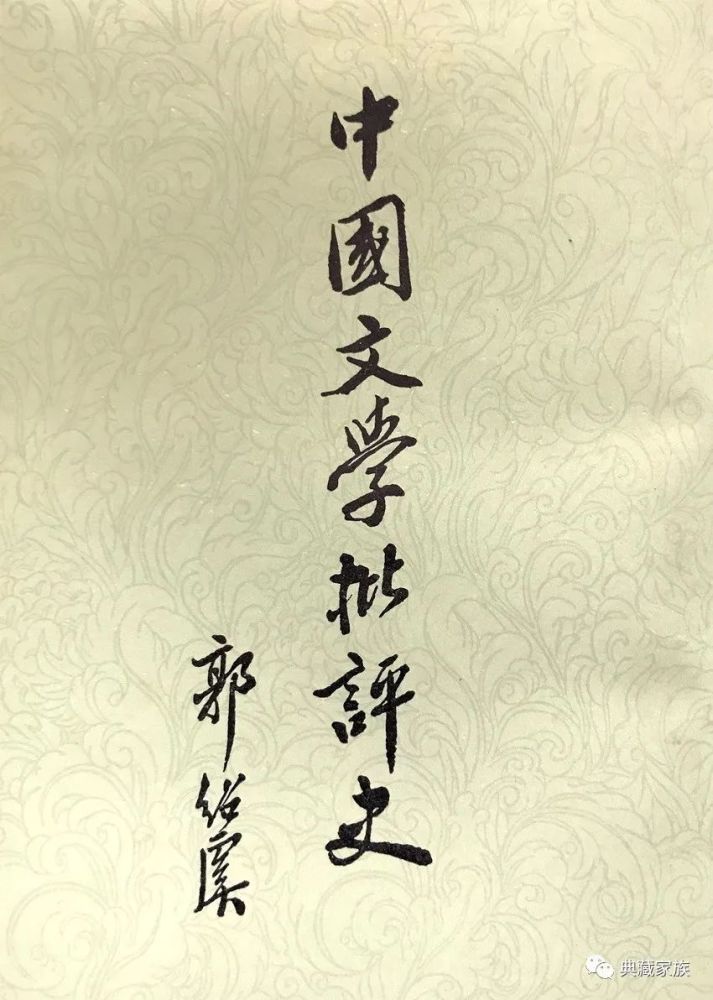 中國文學批評史
郭紹虞
典藏家族